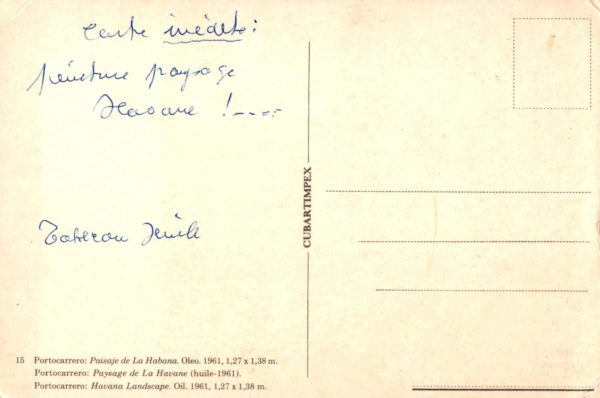 Carte inédite :
peinture paysage
Havane ! - - - -
CUBARTIMPEX
15 Portocarrero: Paisaje de La Habana. Oleo. 1961, 1,27 x 1,38 m.
Portocarrero: Paysage de La Havane (huile-1961).
Portocarrero: Havana Landscape. Oil. 1961, 1,27 x 1,38 m.